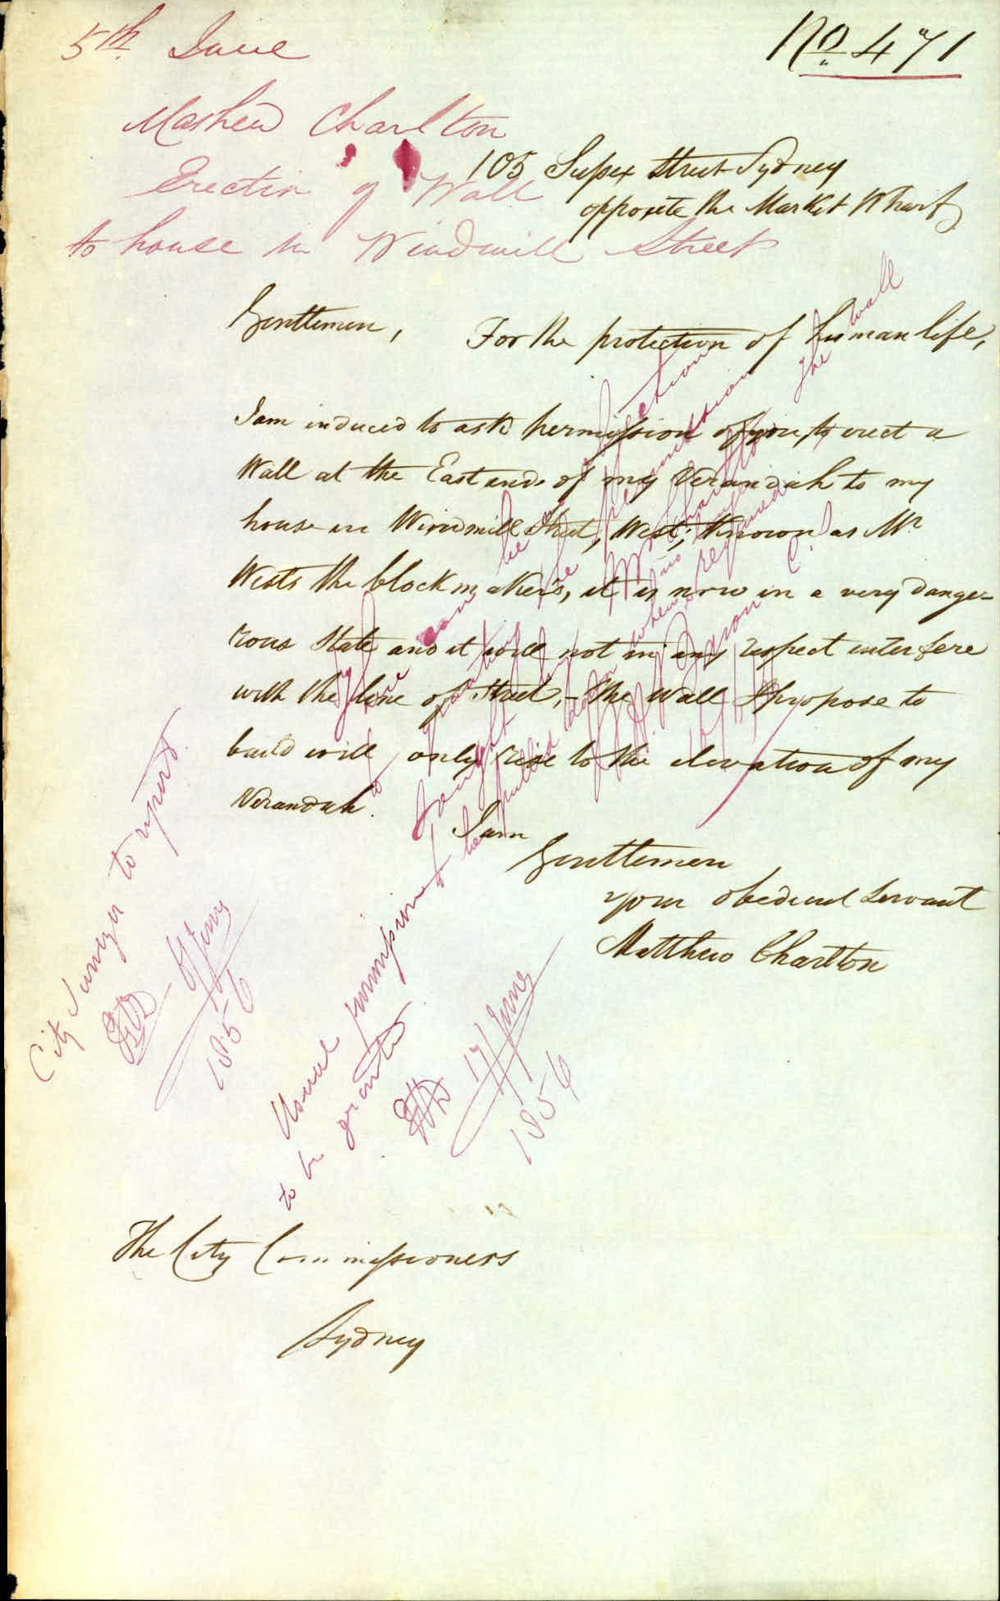 5th. June
No 471
Mathew Charlton
Erection of Wall
to house in Windmill Street
105 Sussex Street Sydney
opposite the Market Wharf
Gentlemen,
For the protection of human life,
I am induced to ask permission of you to erect a
Wall at the East end of my Verandah to my
house in Windmill Street, West, Known as Mr
Wests the block maker's, it is now in a very dange-
rous State and it will not in any respect interfere
with the line of Street, - the Wall I propose to
build will only rise to the elevation of my
Verandah.
I am
Gentlemen
your obedient Servant
Matthew Charlton
there can be no objection
to
the permission
sought
the wall
to be pulled down when required
City Surveyor to report
6 June
1856
Usual permission
to be granted.
17 June
1856
The City Commissioners
Sydney